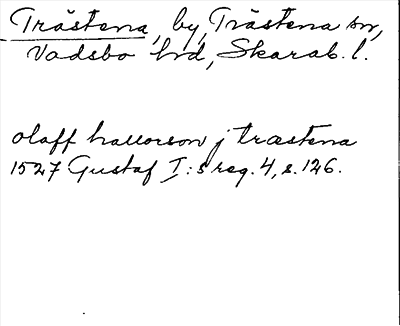 Trästena, by, Trästena sn,
Vadsbo hd, Skarab. l.
olaff hallorson j træstena
1527 Gustaf I:s reg. 4, s. 126.